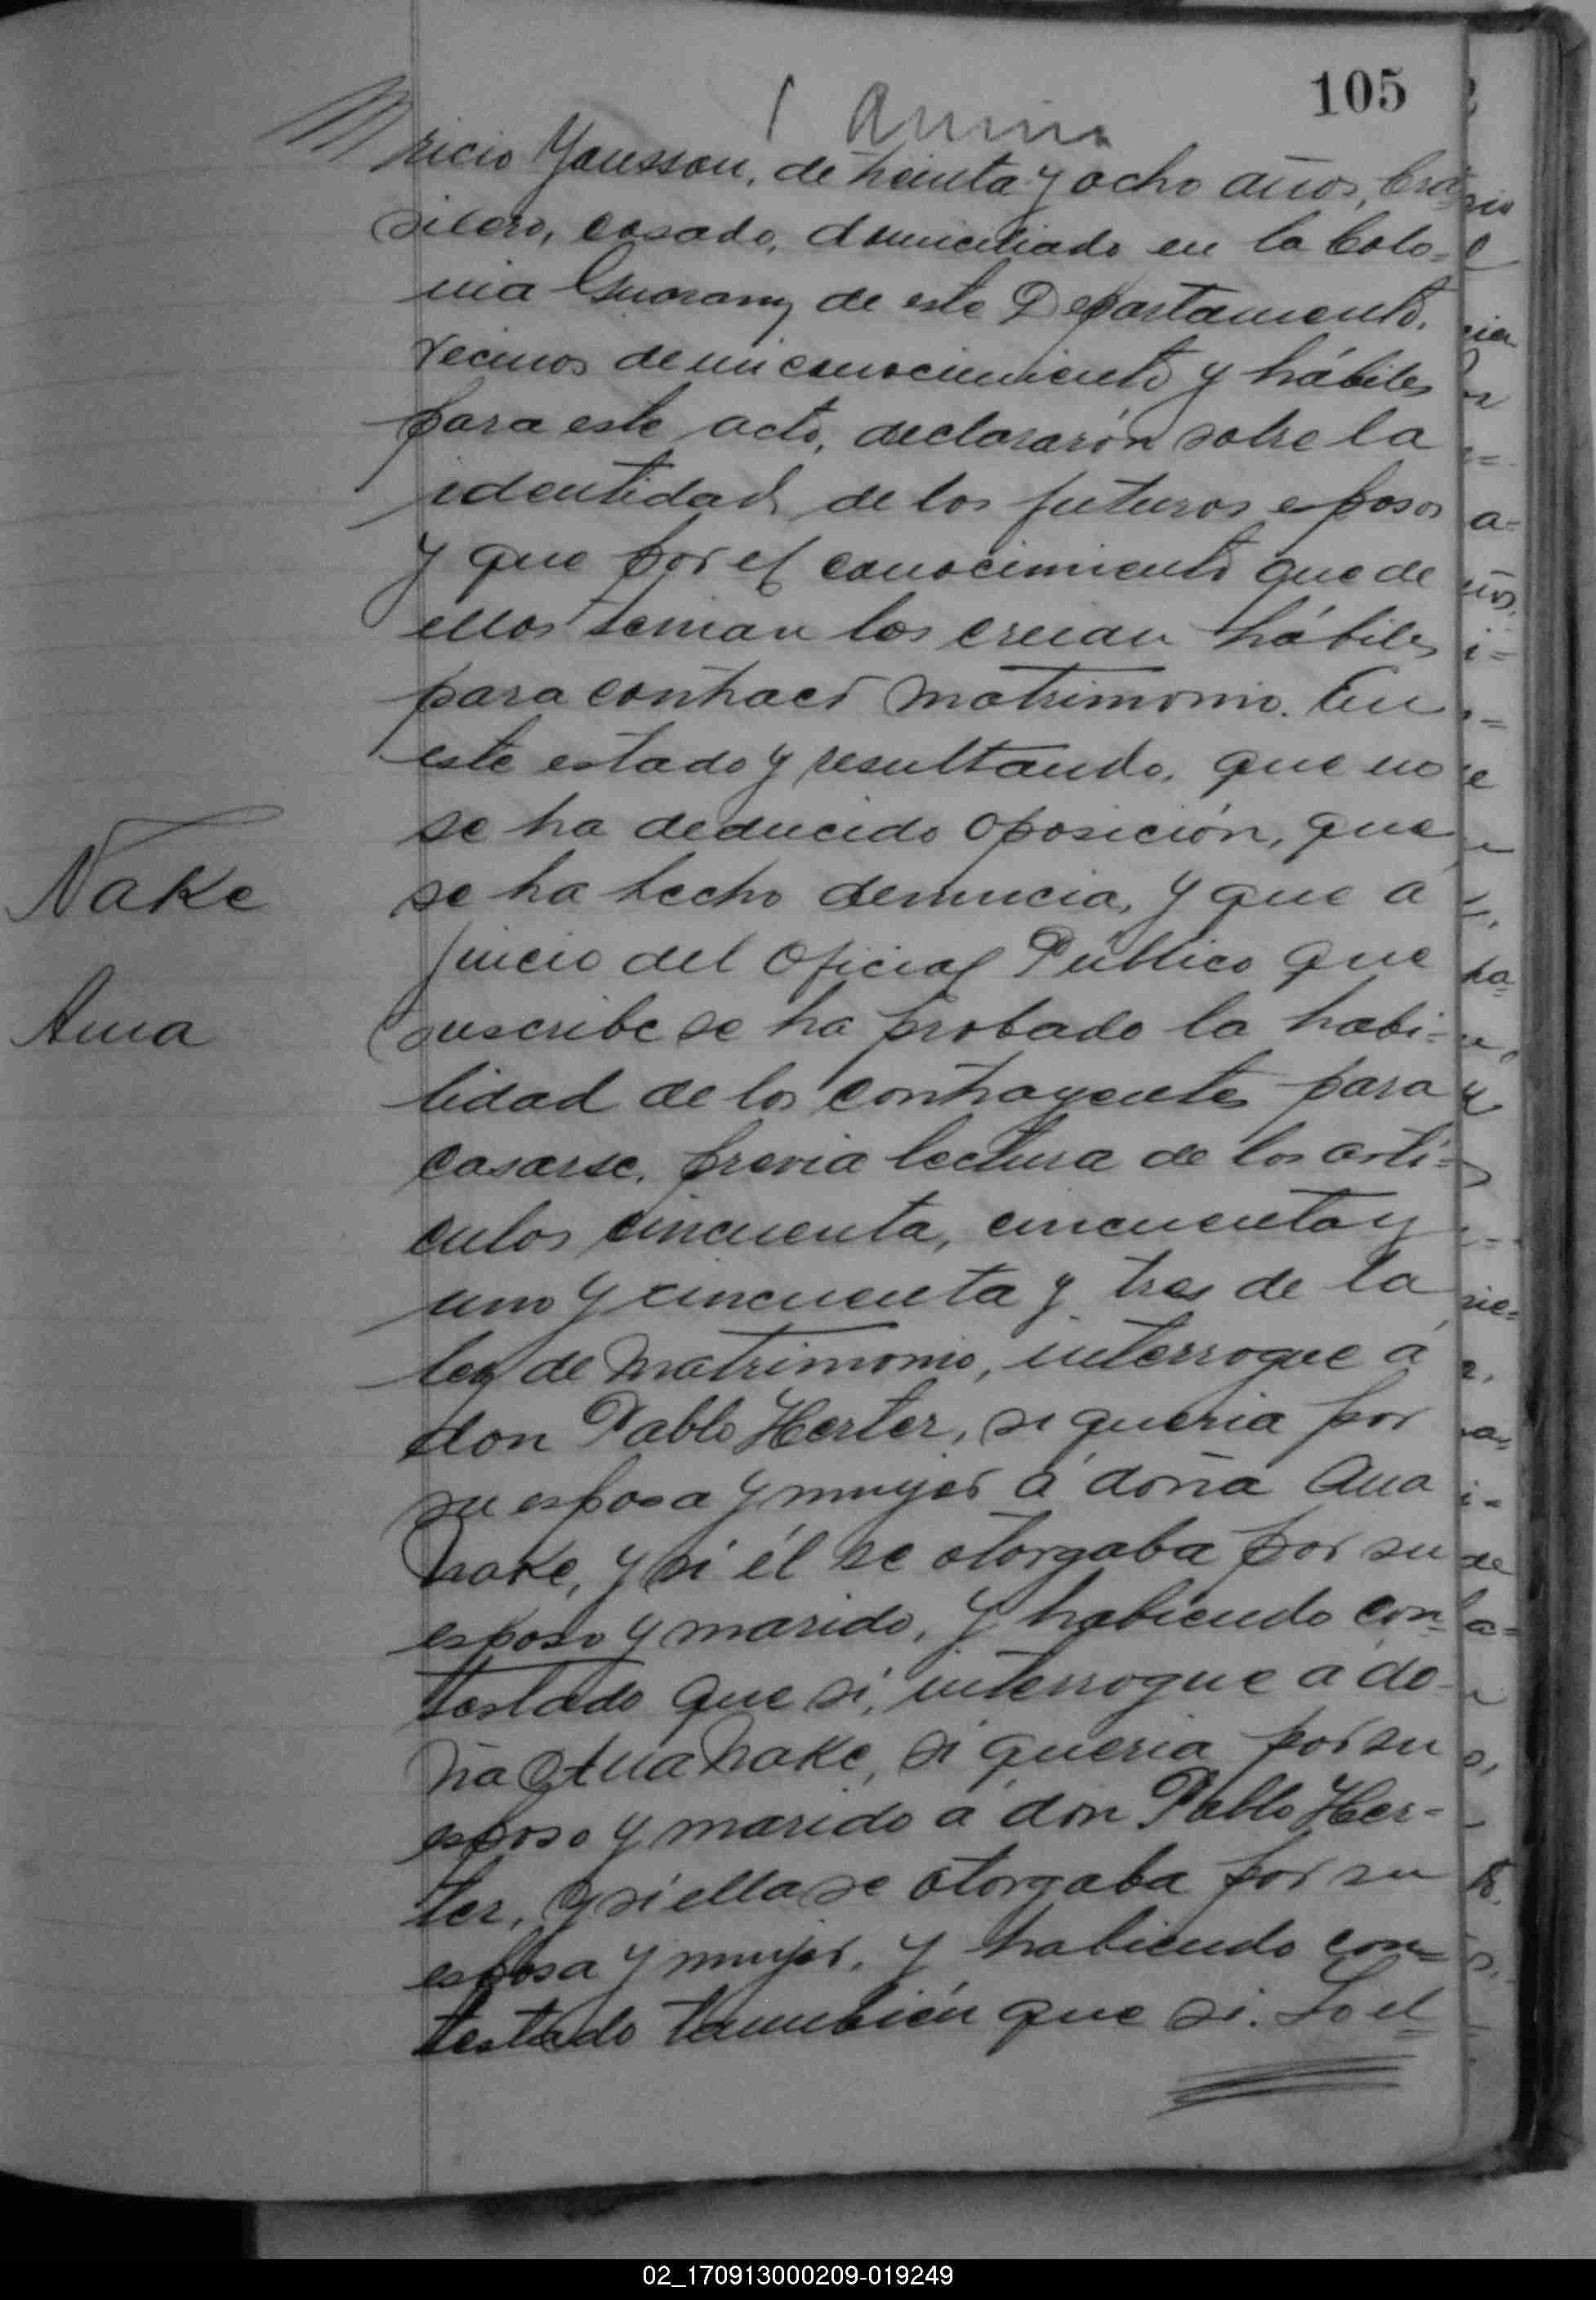 105
ricio Yansson, de treinta y ocho años, bra-
silero, casado, domiciliado en la Colo=
nia Guarany de este Departamento,
vecinos de mi conocimiento y hábiles
para este acto, declararón sobre la
identidad de los futuros esposos
y que por el conocimiento que de
ellos tenian los creian hábiles
para contraer matrimonio. En
este estado y resultando, que no
se ha deducido oposición, que
se ha hecho denuncia, y que á
juicio del Oficial Público que
suscribe se ha probado la habi=
lidad de los contrayentes para
casarse, previa lectura de los artí=
culos cincuenta, cincuenta y
uno y cincuenta y tres de la
ley de matrimonio, interrogue á
don Pablo Herter, si queria por
su esposa y mujer á doña Ana
Nake, y si él se otorgaba por su
esposo y marido, y habiendo con-
testado que si, interrogue a do-
ña Ana Nake, si queria por su
esposo y marido á don Pablo Her-
ter, y si ella se otorgaba por su
esposa y mujer, y habiendo con=
testado tambien que si. Yo el=
Nake
Ana
02_170913000209-019249